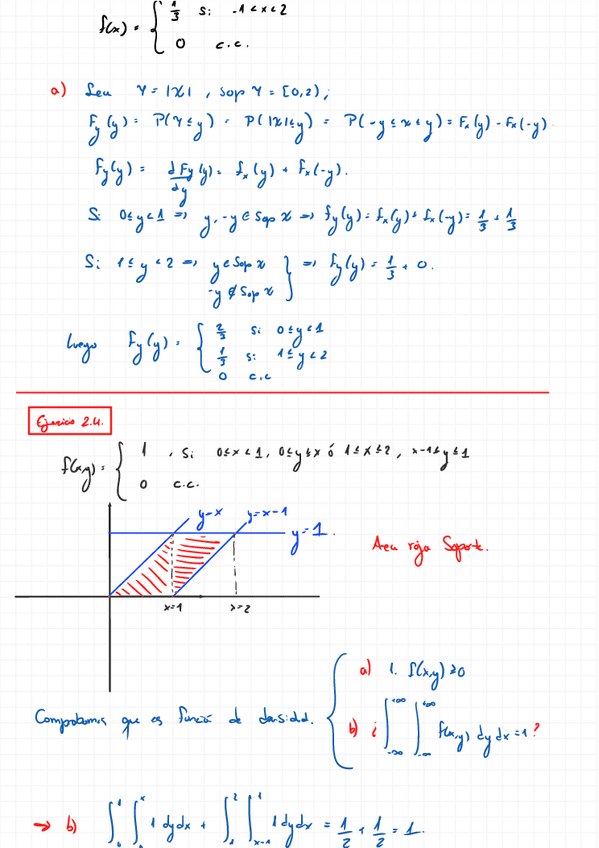 f(x) = { 1/3 si -1 < x < 2
0 c.c.
a) Sea Y = |X| , Sop Y = [0,2) ;
F_y(y) = P(Y ≤ y) = P(|X| ≤ y) = P(-y ≤ x ≤ y) = F_x(y) - F_x(-y)
f_y(y) = dF_y(y)/dy = f_x(y) + f_x(-y).
Si 0 ≤ y < 1 => y, -y ∈ Sop X => f_y(y) = f_x(y) + f_x(-y) = 1/3 + 1/3
Si 1 ≤ y < 2 => y ∈ Sop X
-y ∉ Sop X } => f_y(y) = 1/3 + 0.
luego f_y(y) = { 2/3 si 0 ≤ y < 1
1/3 si 1 ≤ y < 2
0 c.c
Ejercicio 2.4.
f(x,y) = { 1 , si 0 ≤ x < 1, 0 ≤ y ≤ x ó 1 ≤ x ≤ 2 , x-1 ≤ y ≤ 1
0 c.c.
y=x y=x-1
y=1.
Area roja Soporte.
x=1 x=2
a) 1. f(x,y) ≥ 0
Comprobamos que es función de densidad.
b) ¿ ∫_{-∞}^{+∞} ∫_{-∞}^{+∞} f(x,y) dy dx = 1 ?
→ b) ∫_0^1 ∫_0^x 1 dy dx + ∫_1^2 ∫_{x-1}^1 1 dy dx = 1/2 + 1/2 = 1.